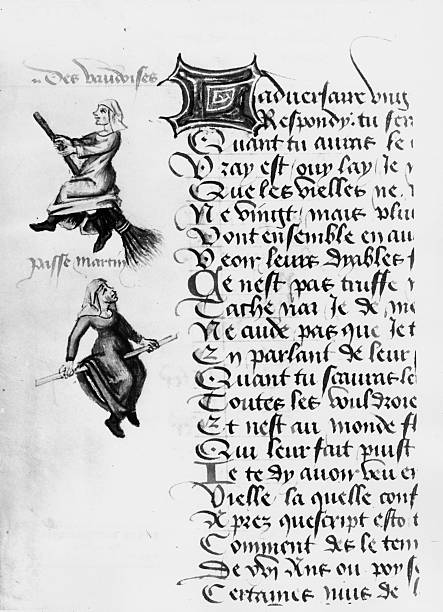 Des vaudoises
passe martin
L adversaire vng
Respondy: tu ser
Quant tu auras le
Vray est ouy lay Je v
Que les vielles ne.
Ne vingt mais plui
Vont ensemble en au
Veoir leurs dyables
Ce nest pas truffe
Sache nar Je de me
Ne cuide pas que Je t
En parlant de leur
Quant tu scauras le
Toutes les vouldroie
Et nest au monde
Qui leur fait puist
Je te dy auoir veu en
Vielle la quelle conf
Aprez quescript esto
Comment des le tem
De xvj Ans ou poy
Certaines nuis de l